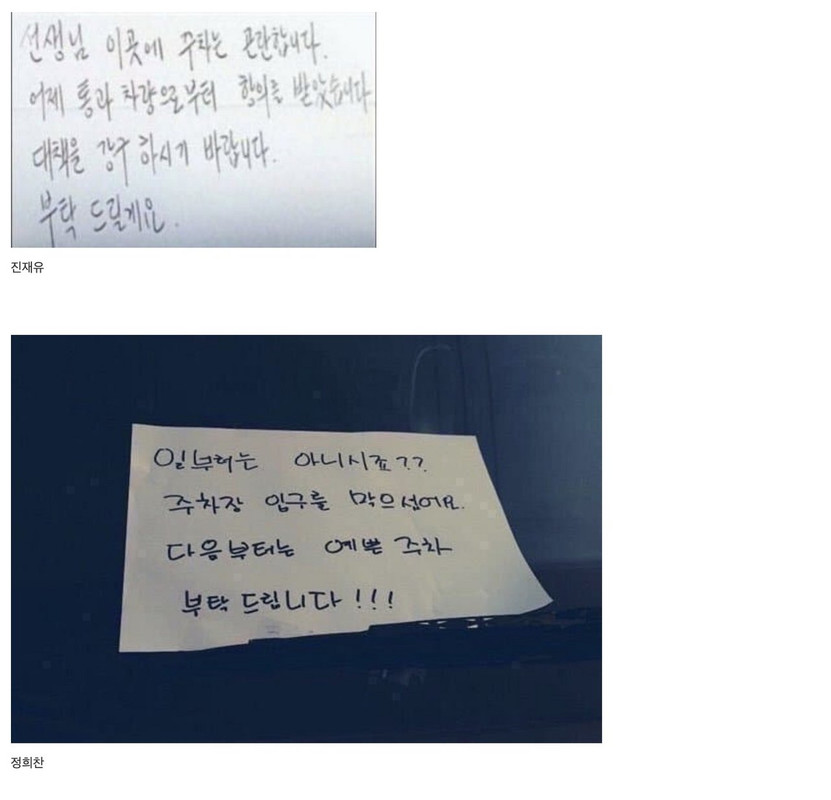 선생님 이곳에 주차는 곤란합니다.
어제 통과 차량으로부터 항의를 받았습니다
대책을 강구 하시기 바랍니다.
부탁 드릴게요.
진재유
일부러는 아니시죠??
주차장 입구를 막으셨어요.
다음부터는 예쁜 주차
부탁 드립니다!!!
정희찬